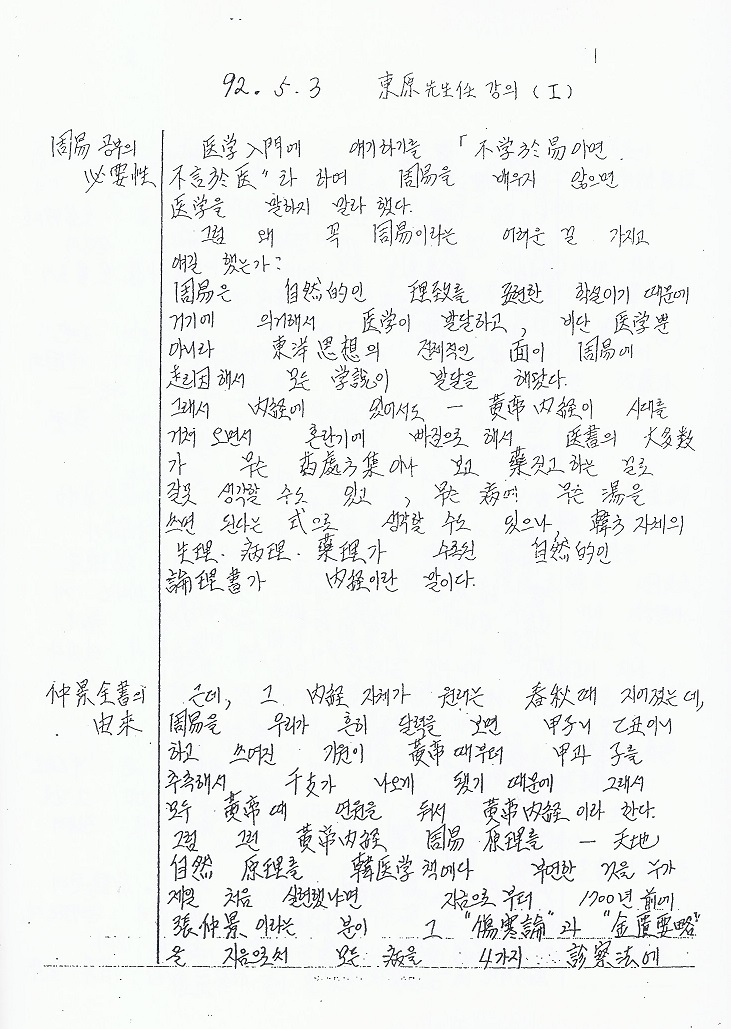 1
92. 5. 3 東原先生任 강의 (I)
周易 공부의
必要性
医学入門에 얘기하기를 「不学於易이면
不言於医"라 하여 周易을 배우지 않으면
医学을 말하지 말라 했다.
그럼 왜 꼭 周易이라는 어려운 걸 가지고
얘길 했는가?
周易은 自然的인 理致를 표현한 학설이기 때문에
거기에 의거해서 医学이 발달하고, 비단 医学뿐
아니라 東洋思想의 전체적인 面이 周易에
起因해서 모든 学說이 발달을 해왔다.
그래서 內経에 있어서도 — 黃帝內経이 시대를
거쳐 오면서 혼란기에 빠짐으로 해서 医書의 大多数
가 무슨 处方集이나 보고 藥짓고 하는 걸로
잘못 생각할 수도 있고, 무슨 病에 무슨 湯을
쓰면 된다는 式으로 생각할 수도 있으나, 韓方 자체의
生理·病理·藥理가 수록된 自然的인
論理書가 內経이란 말이다.
仲景全書의
由来
근데, 그 內経 자체가 원래는 春秋때 지어졌는데,
周易을 우리가 흔히 달력을 보면 甲子니 乙丑이니
하고 쓰여진 기원이 黃帝때부터 甲과 子를
추측해서 干支가 나오게 됐기 때문에 그래서
모두 黃帝때 연원을 둬서 黃帝內経이라 한다.
그럼 그런 黃帝內経 周易 原理를 — 天地
自然 原理를 韓医学 책에다 부연한 것을 누가
제일 처음 실현했냐면 지금으로부터 1700년 前에
張仲景이라는 분이 그 "傷寒論"과 "金匱要略"
을 지음으로서 모든 病을 4가지 診察法에